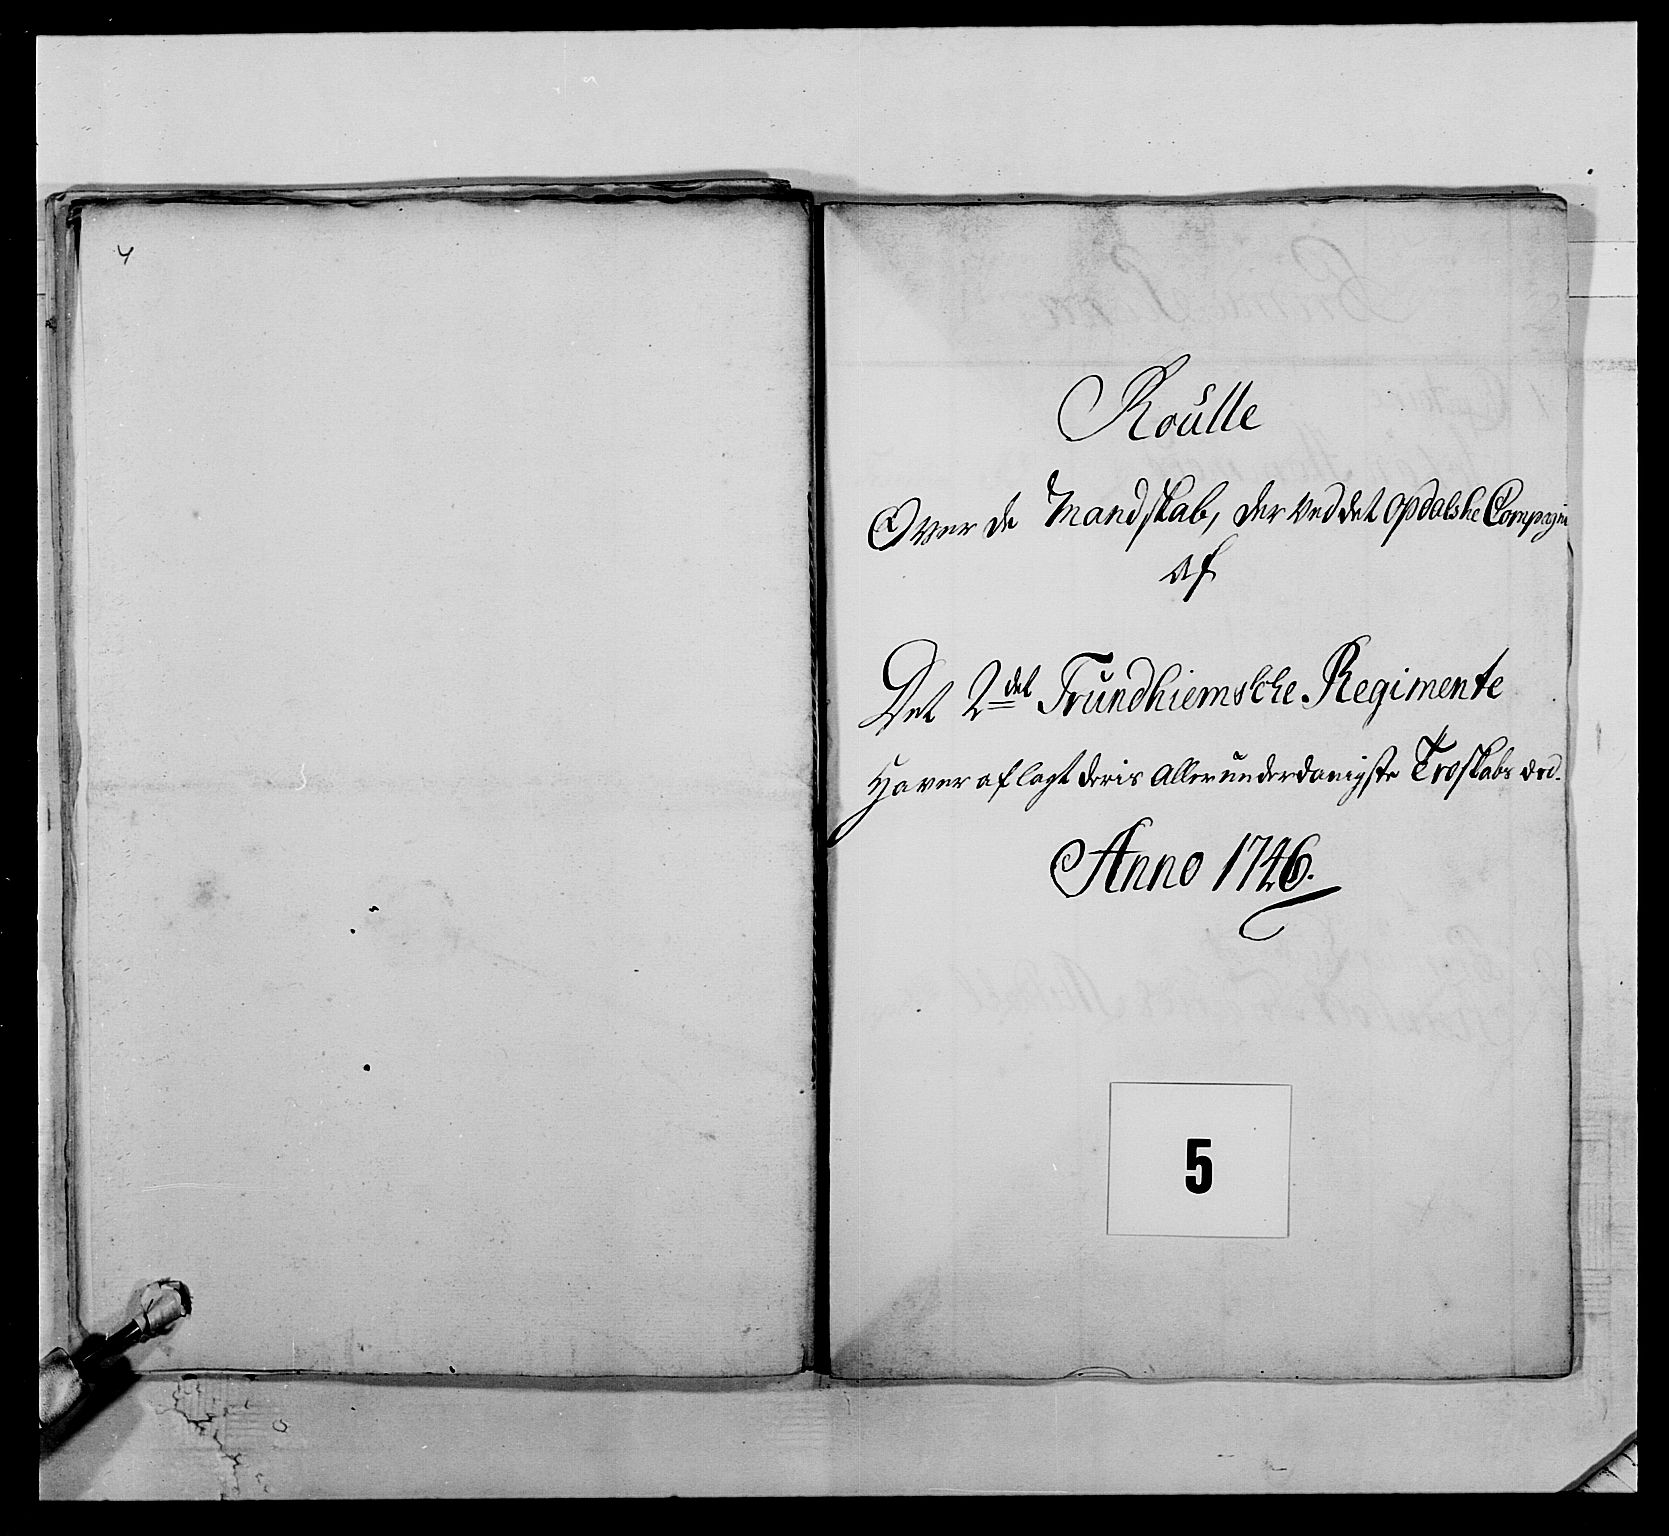 4
Roulle
Over de Mandskab, der ved det opdalske Compagnie
af
Det 2det Trundhiemsche Regimente
Haver aflagt deris Allerunderdanigste Troskabs æed.
Anno 1746.
5